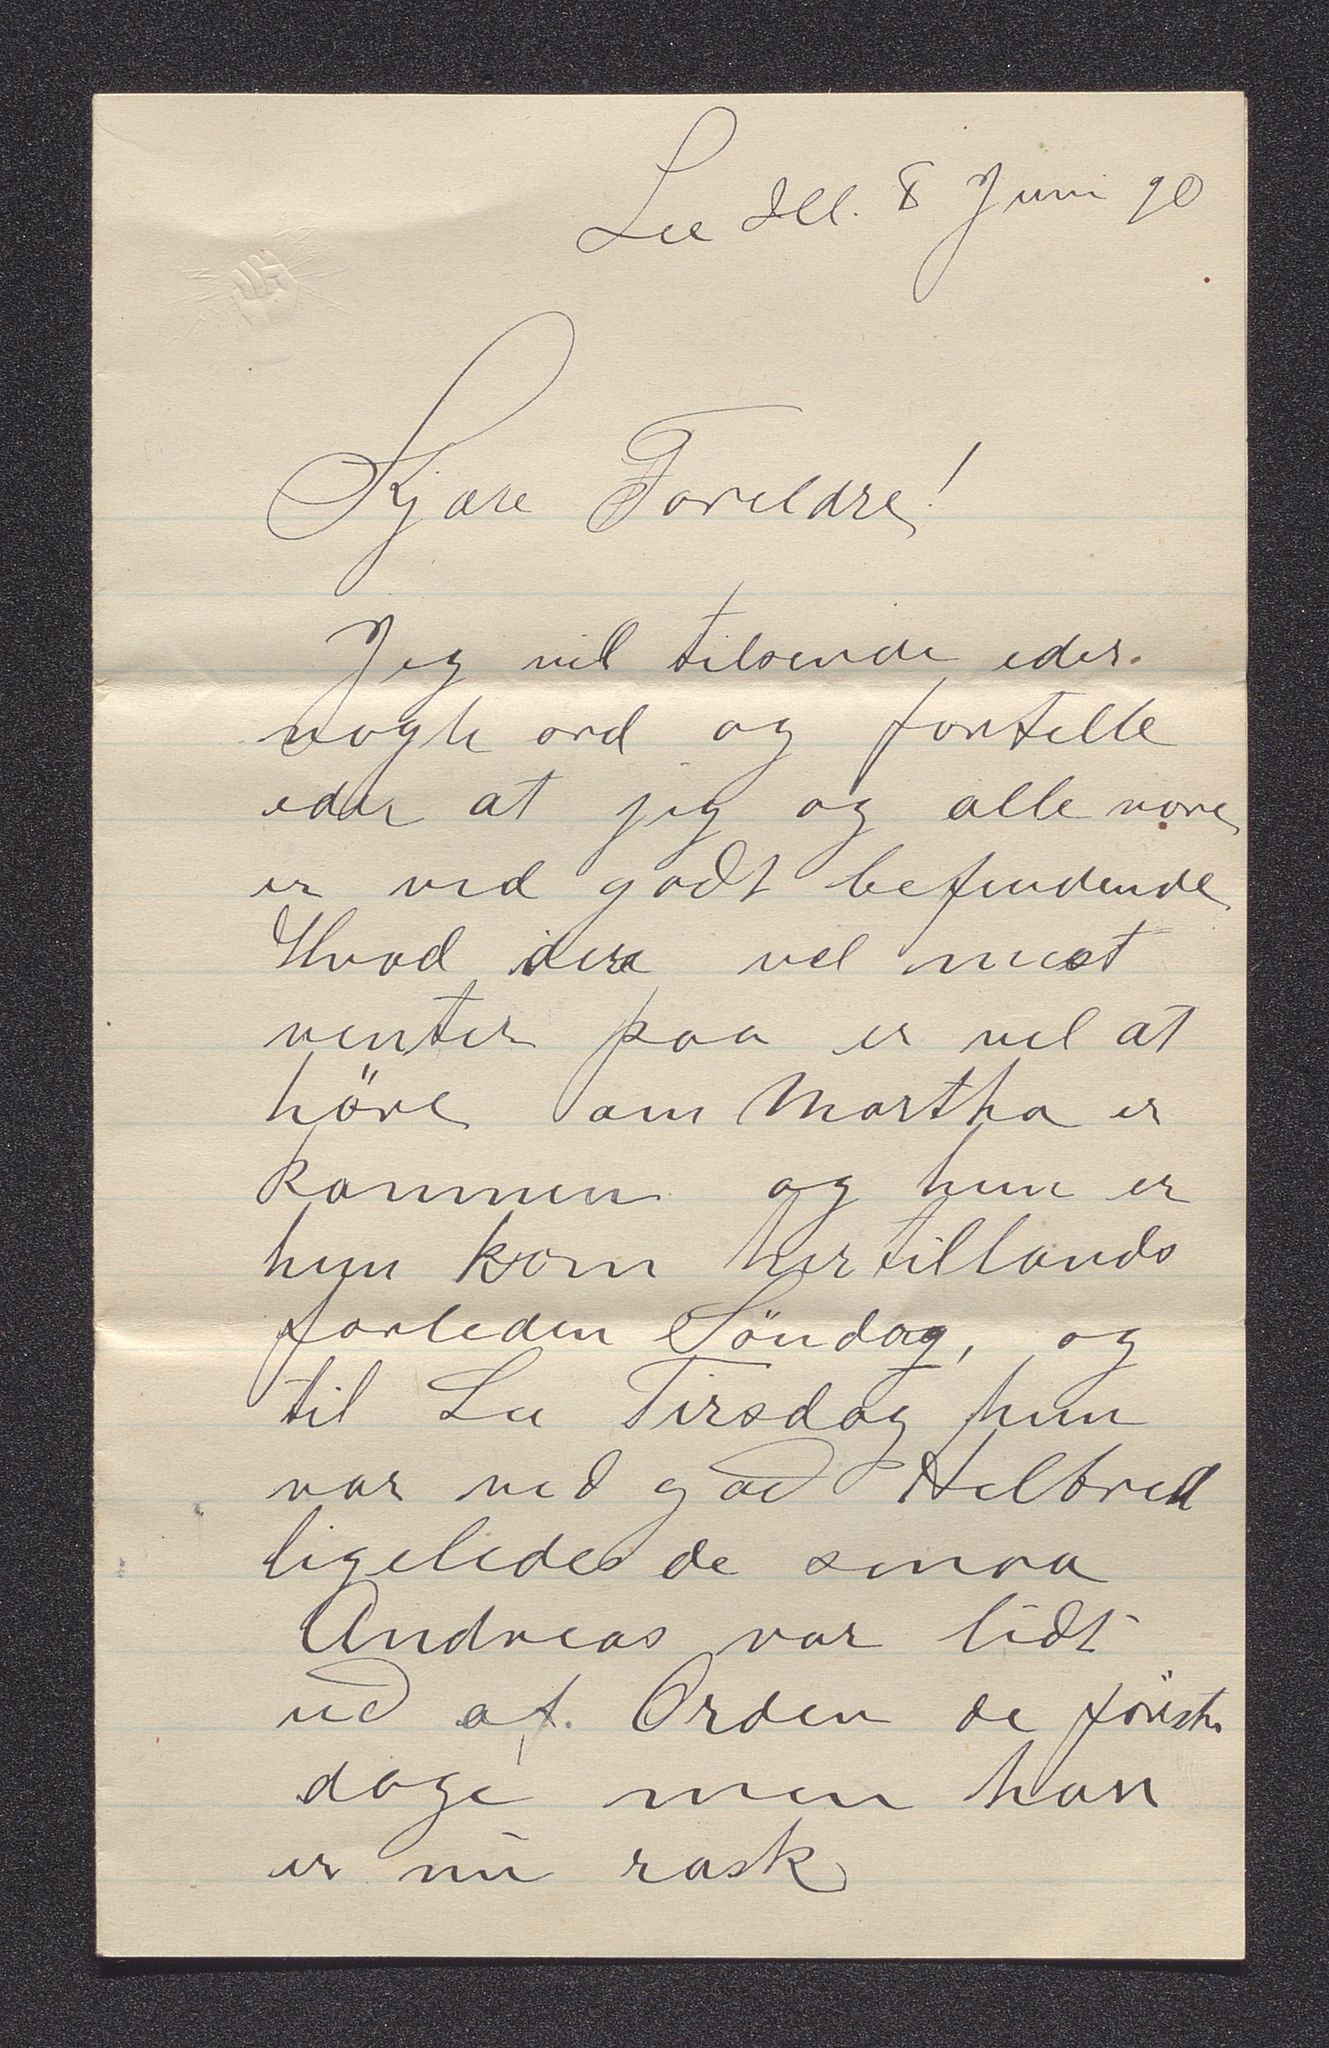 Lee Ill. 8 Juni 90
Kjære Foreldre!
Jeg vil tilsende eder
nogle ord og fortelle
eder at jeg og alle vore
er ved godt befindende
Hvad dere vel mest
venter paa er vel at
höre om Martha er
kommen og hun er
hun kom hertillands
forleden Söndag, og
til Lee Tirsdag hun
var ved god Helbred
ligeledes de smaa
Andreas var lidt
ud af Orden de förste
dage men han
er nu rask